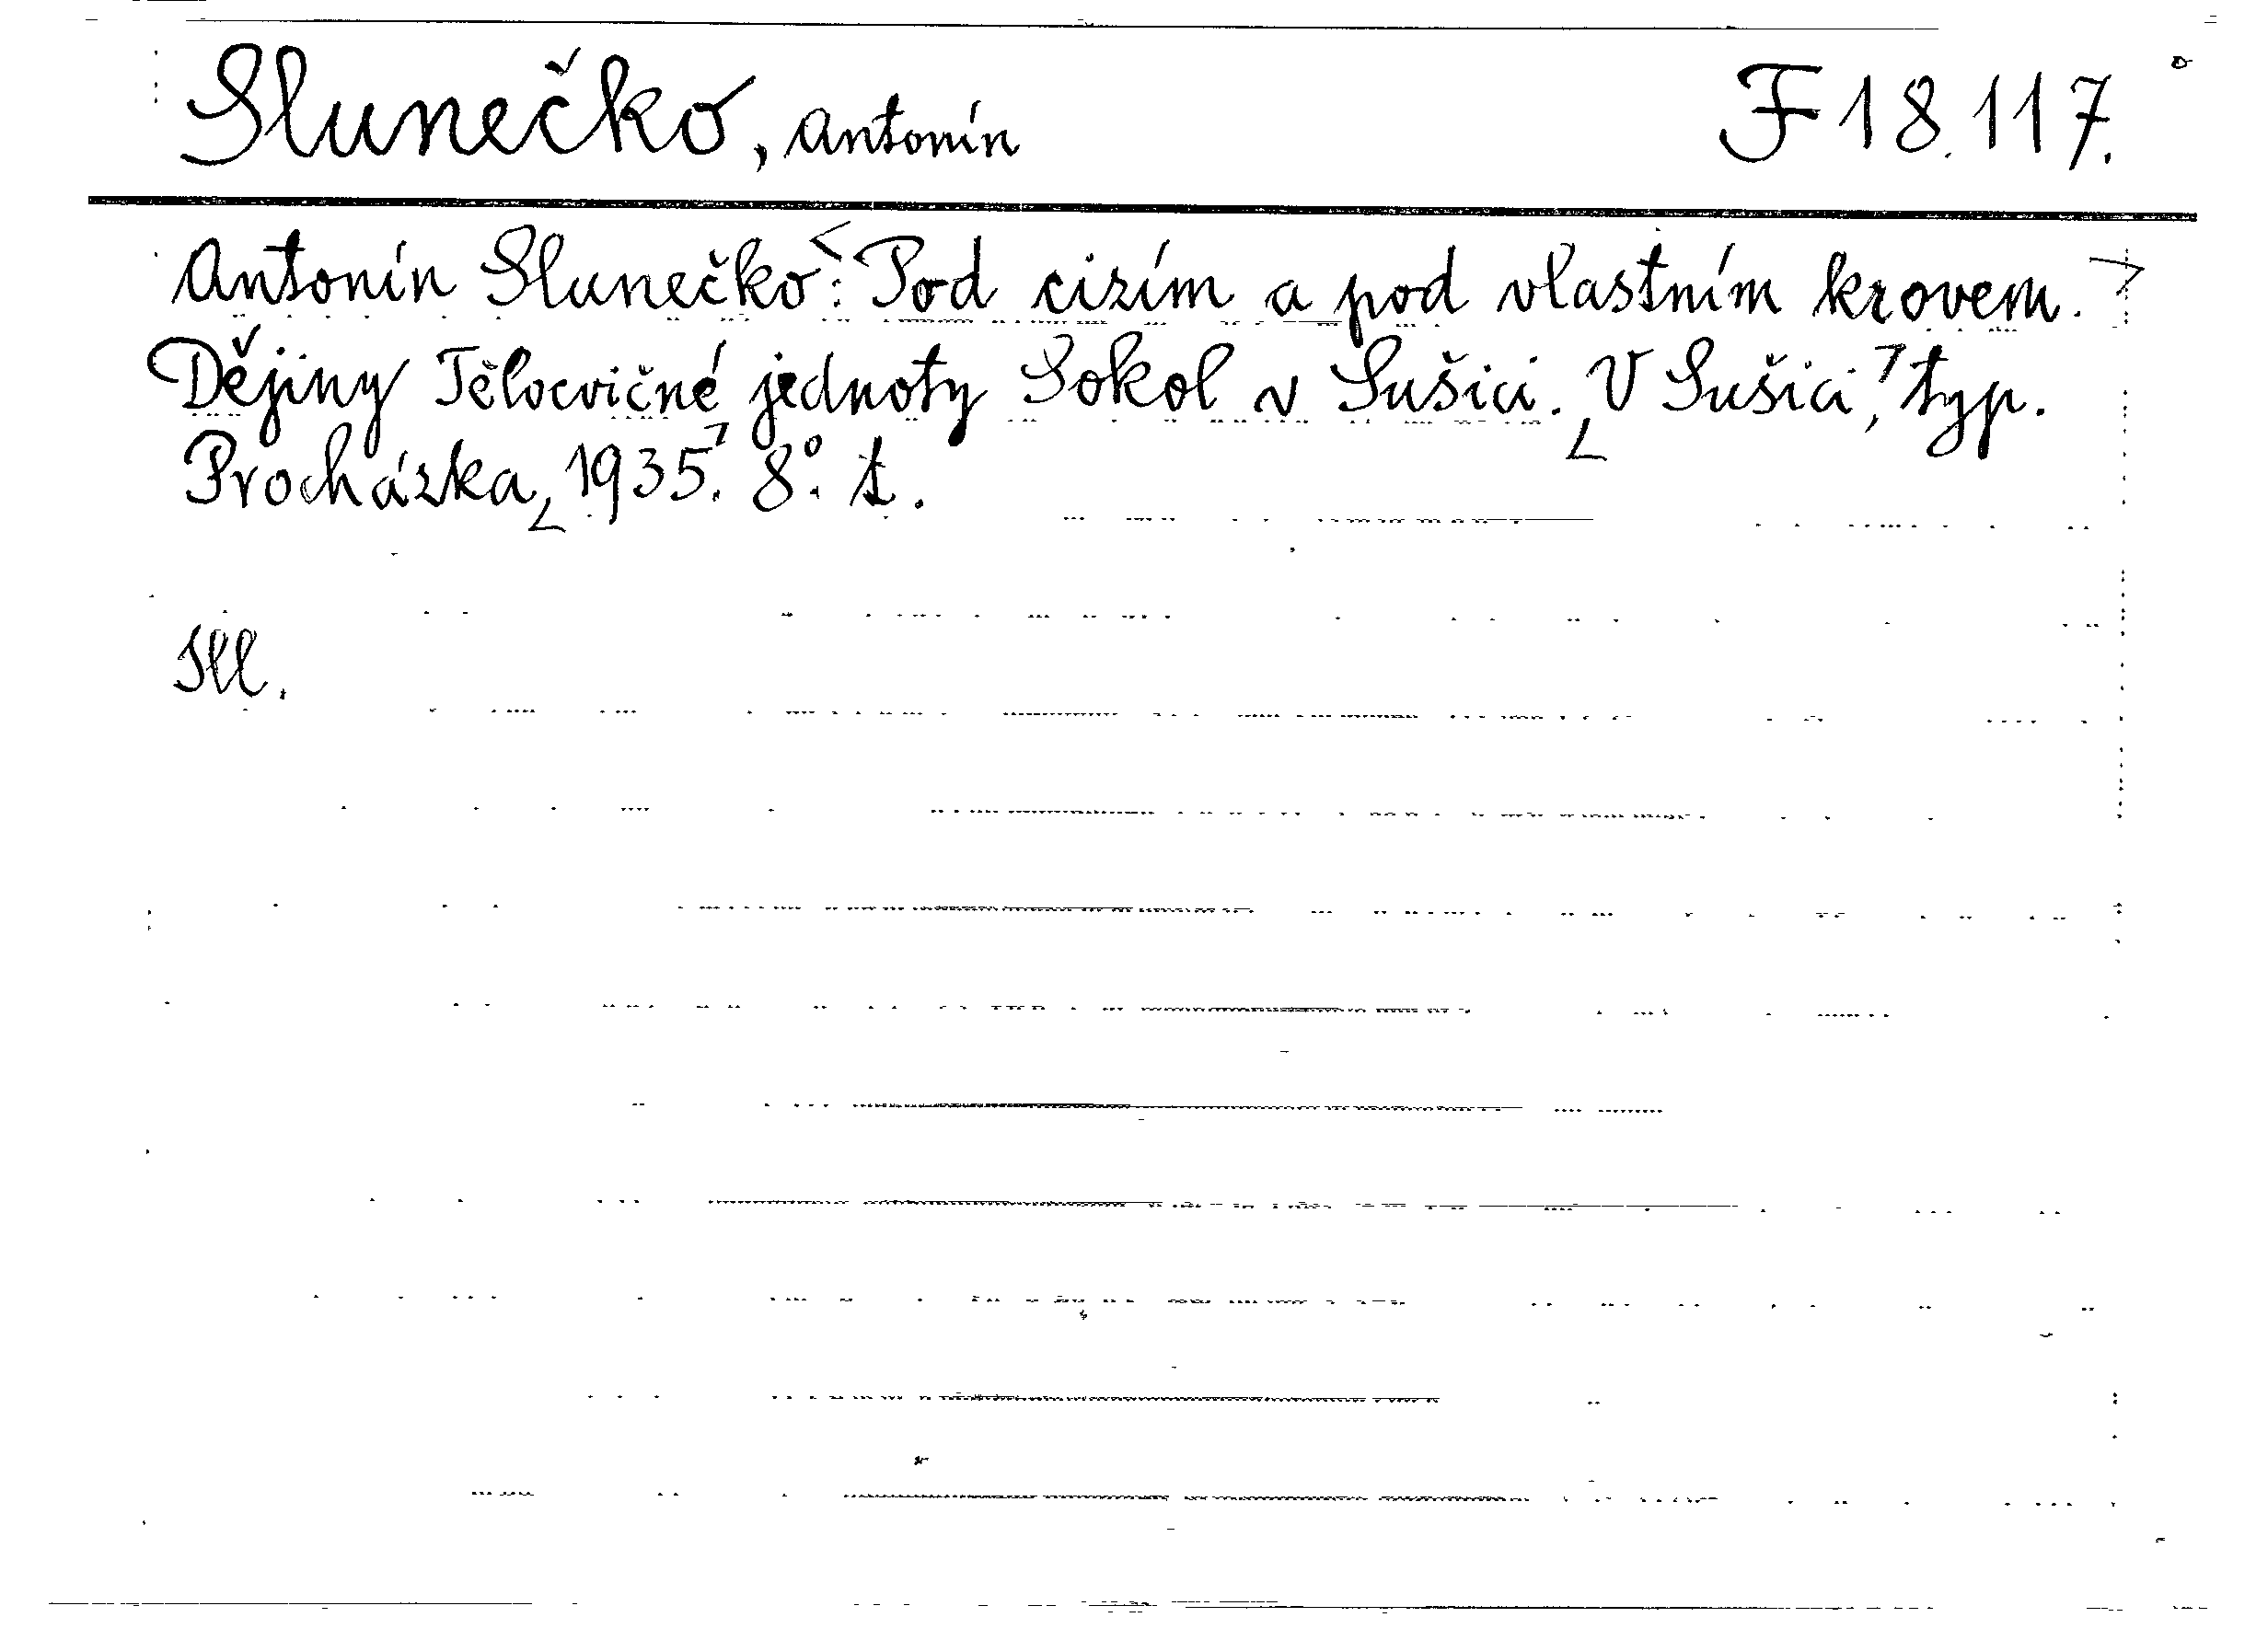 Slunečko, Antonín F 18.117.
Antonín Slunečko: Pod cizím a pod vlastním krovem.
Dějiny Tělocvičné jednoty Sokol v Sušici. V Sušici, typ.
Procházka, 1935. 8°. t.
Ill.